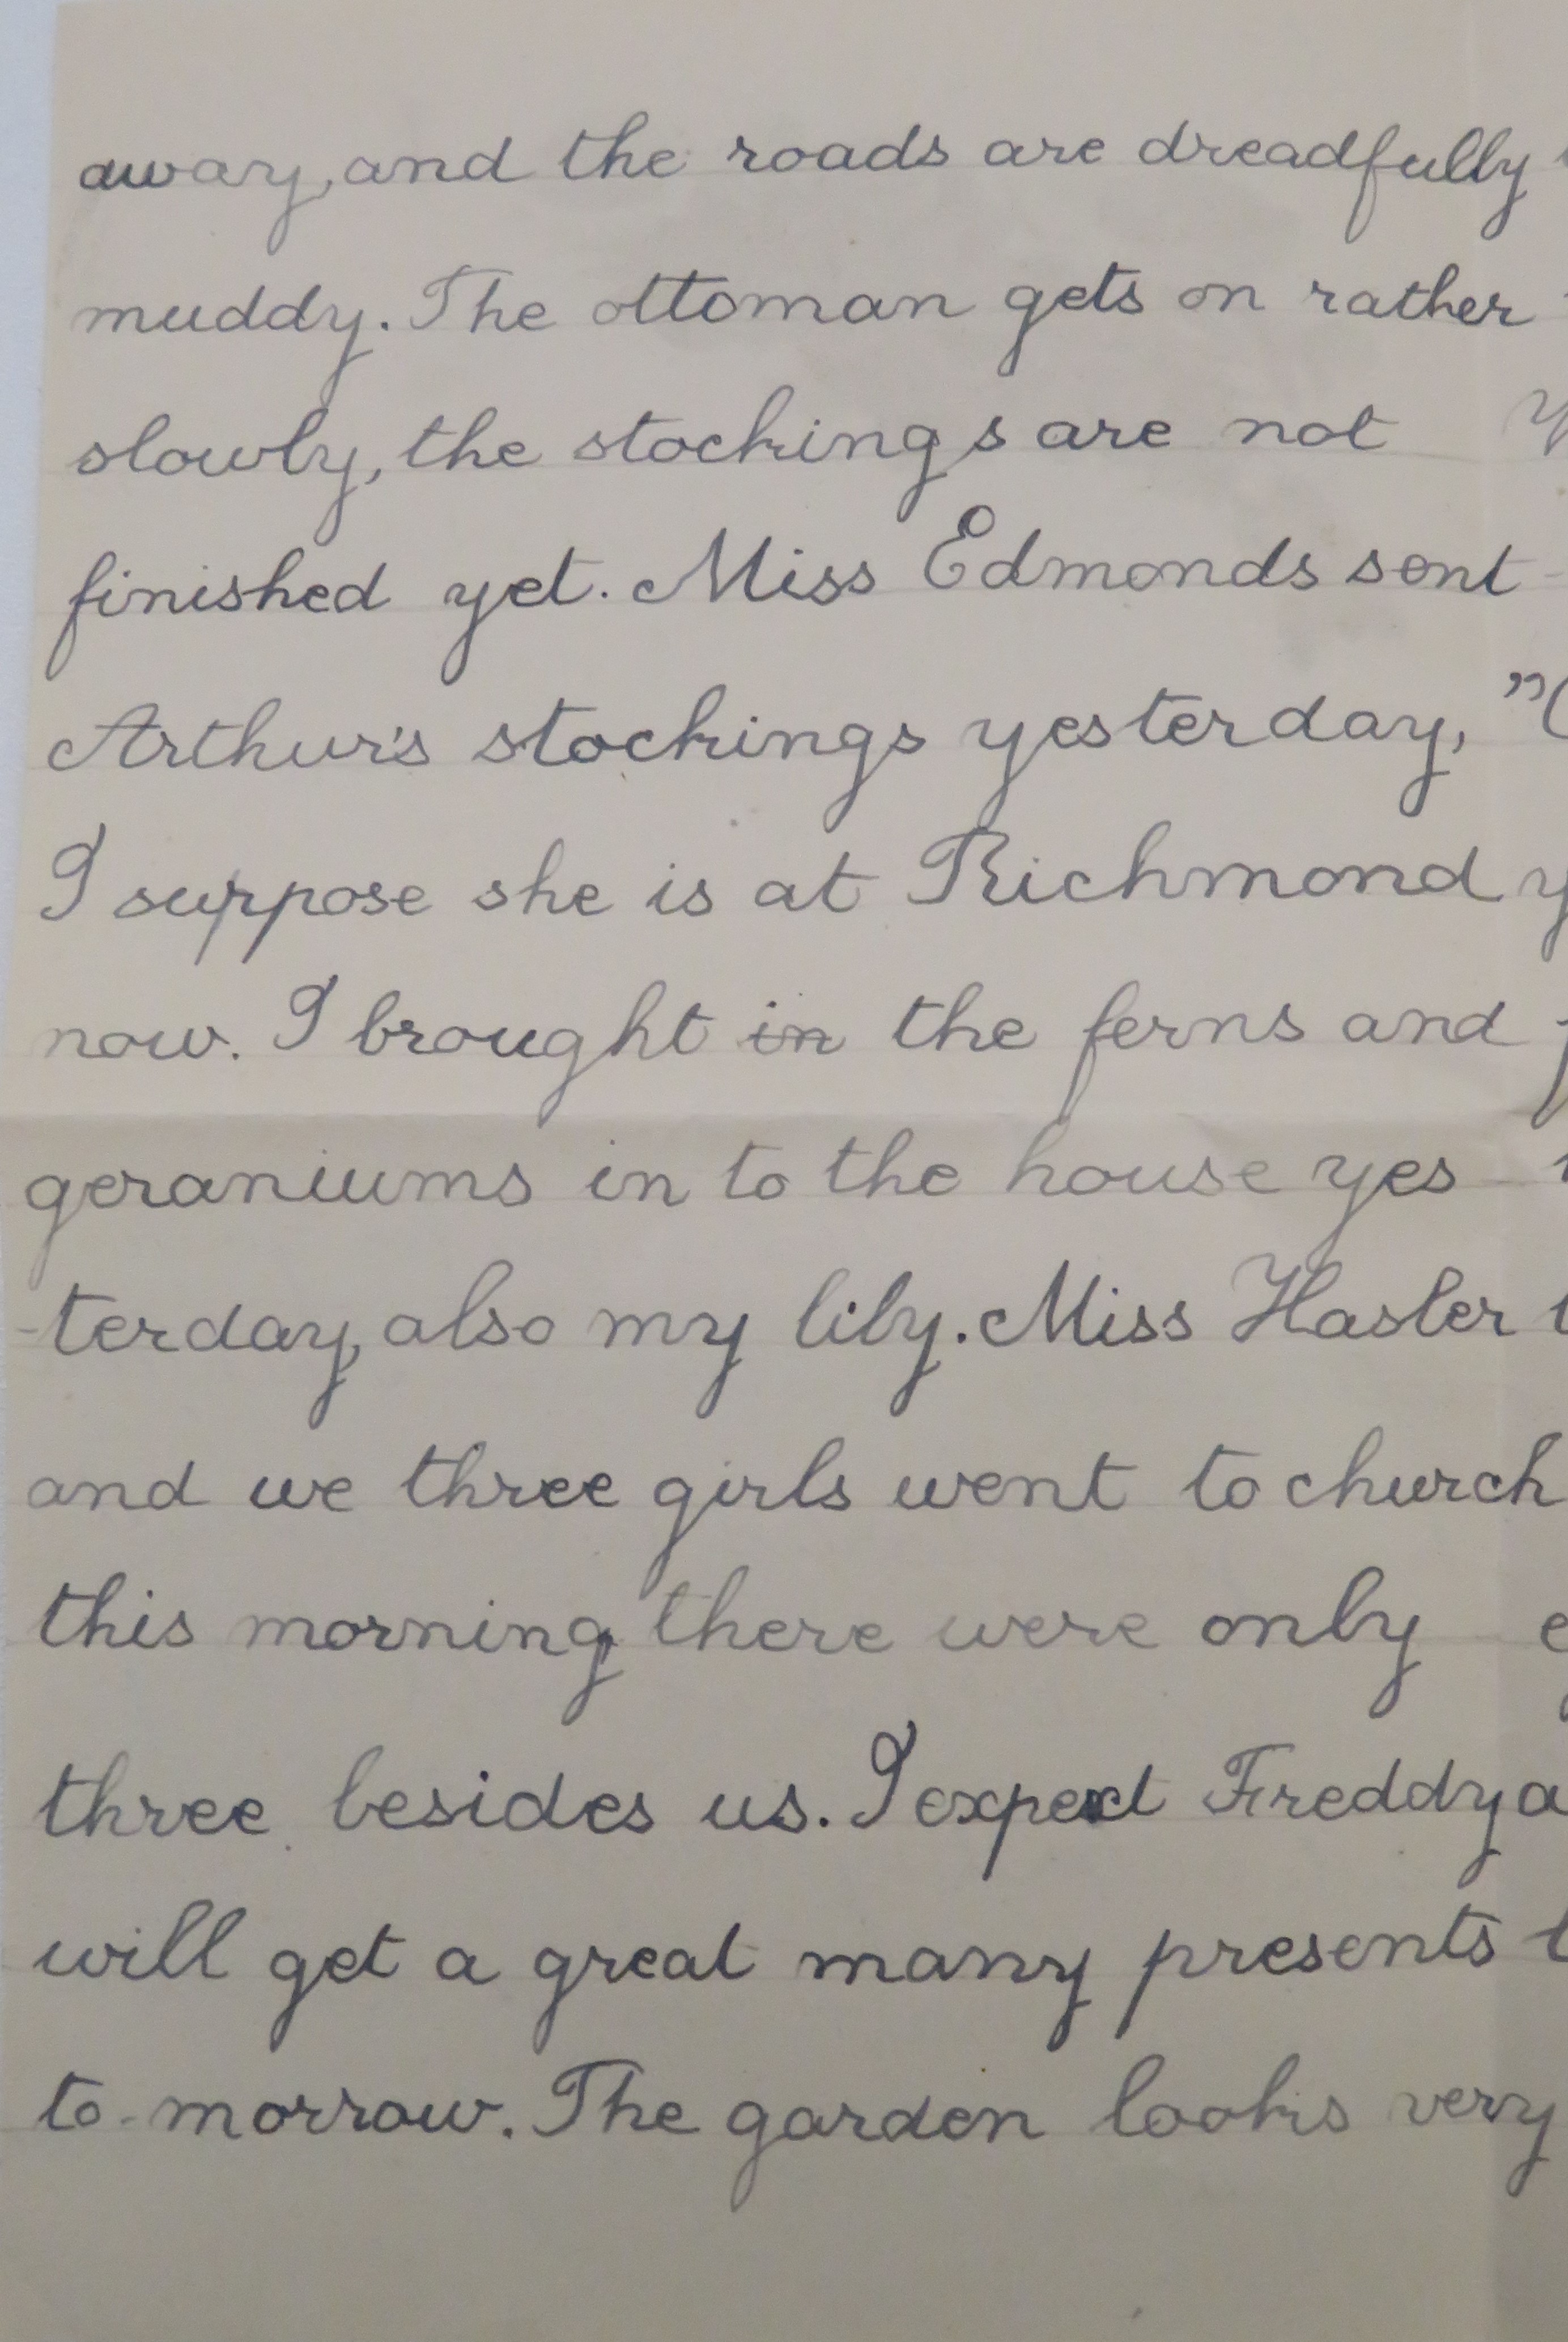 away, and the roads are dreadfully
muddy. The ottoman gets on rather
slowly, the stockings are not
finished yet. Miss Edmonds sent
Arthur's stockings yesterday,
I suppose she is at Richmond
now. I brought in the ferns and
geraniums in to the house yes
-terday, also my lily. Miss Hasler
and we three girls went to church
this morning, there were only
three besides us. I expect Freddy
will get a great many presents
to-morrow. The garden looks very